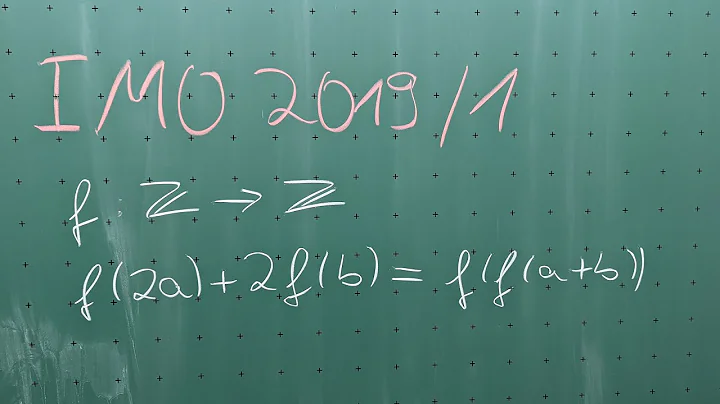 IMO 2019/1
f: ℤ → ℤ
f(2a)+2f(b)=f(f(a+b))